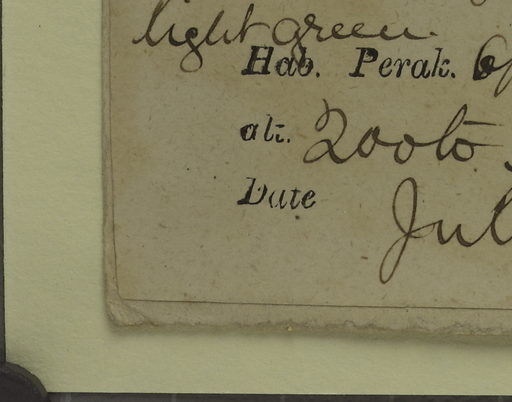 light green.
Hab. Perak.
alt. 200 to
Date Jul